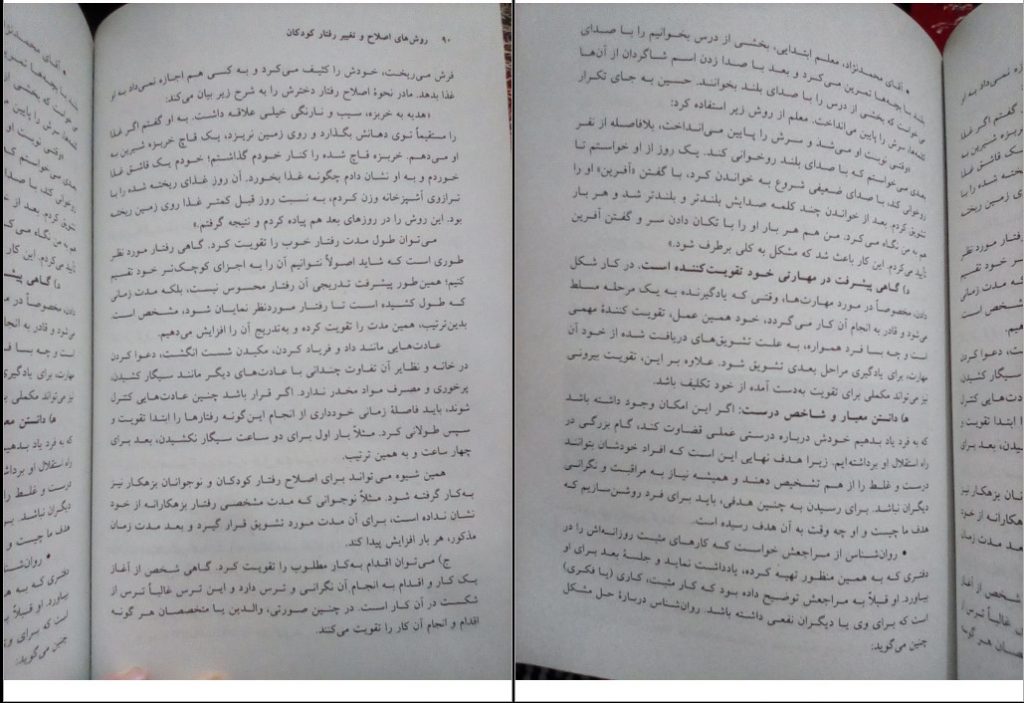 ۹۰ روش‌های اصلاح و تغییر رفتار کودکان
فرش می‌ریخت، خودش را کثیف می‌کرد و به کسی هم اجازه نمی‌داد به او
غذا بدهد. مادر نحوهٔ اصلاح رفتار دخترش را به شرح زیر بیان می‌کند:
«هدیه به خربزه، سیب و نارنگی خیلی علاقه داشت. به او گفتم اگر غذا
را مستقیماً توی دهانش بگذارد و روی زمین نریزد، یک قاچ خربزه شیرین به
او می‌دهم. خربزه قاچ شده را کنار خودم گذاشتم؛ خودم یک قاشق غذا
خوردم و به او نشان دادم چگونه غذا بخورد. آن روز غذای ریخته شده را با
ترازوی آشپزخانه وزن کردم، به نسبت روز قبل کمتر غذا روی زمین ریخته
بود. این روش را در روزهای بعد هم پیاده کردم و نتیجه گرفتم.»
می‌توان طول مدت رفتار خوب را تقویت کرد. گاهی رفتار مورد نظر
طوری است که شاید اصولاً نتوانیم آن را به اجزای کوچک‌تر خود تقیم
کنیم؛ همین‌طور پیشرفت تدریجی آن رفتار محسوس نیست، بلکه مدت زمانی
که طول کشیده است تا رفتار موردنظر نمایان شود، مشخص است.
بدین‌ترتیب، همین مدت را تقویت کرده و به‌تدریج آن را افزایش می‌دهیم.
عادت‌هایی مانند داد و فریاد کردن، مکیدن شست انگشت، دعوا کردن
در خانه و نظایر آن تفاوت چندانی با عادت‌های دیگر مانند سیگار کشیدن،
پرخوری و مصرف مواد مخدر ندارد. اگر قرار باشد چنین عادت‌هایی کنترل
شوند، باید فاصلهٔ زمانی خودداری از انجام این‌گونه رفتارها را ابتدا تقویت و
سپس طولانی کرد. مثلاً بار اول برای دو ساعت سیگار نکشیدن، بعد برای
چهار ساعت و به همین ترتیب.
همین شیوه می‌تواند برای اصلاح رفتار کودکان و نوجوانان بزهکار نیز
به‌کار گرفته شود. مثلاً نوجوانی که مدت مشخصی رفتار بزهکارانه از خود
نشان نداده است، برای آن مدت مورد تشویق قرار گیرد و بعد مدت زمان
مذکور، هر بار افزایش پیدا کند.
ج) می‌توان اقدام به‌کار مطلوب را تقویت کرد. گاهی شخص از آغاز
یک کار و اقدام به انجام آن نگرانی و ترس دارد و این ترس غالباً ترس از
شکست در آن کار است. در چنین صورتی، والدین یا متخصصان هر گونه
اقدام و انجام آن کار را تقویت می‌کنند.
• آقای محمدنژاد، معلم ابتدایی، بخشی از درس بخوانیم را با صدای
بلند با بچه‌ها تمرین می‌کرد و بعد با صدا زدن اسم شاگردان از آن‌ها
می خواست که بخشی از درس را با صدای بلند بخوانند. حسین به جای تکرار
کلمه‌ها، سرش را پایین می‌انداخت. معلم از روش زیر استفاده کرد:
«وقتی نوبت او می‌شد و سرش را پایین می‌انداخت، بلافاصله از نفر
بعدی می‌خواستم که با صدای بلند روخوانی کند. یک روز از او خواستم تا
روخوانی کند، با صدای ضعیفی شروع به خواندن کرد، با گفتن «آفرین» او را
تشویق کردم. بعد از خواندن چند کلمه صدایش بلندتر و بلندتر شد و هر بار
هم به من نگاه می‌کرد. من هم هر بار او را با تکان دادن سر و گفتن آفرین
تأیید می‌کردم. این کار باعث شد که مشکل به کلی برطرف شود.»
د) گاهی پیشرفت در مهارتی خود تقویت‌کننده است. در کار شکل
دادن، مخصوصاً در مورد مهارت‌ها، وقتی که یادگیرنده به یک مرحله مسلط
می‌شود و قادر به انجام آن کار می گردد، خود همین عمل، تقویت کنندهٔ مهمی
است و چه بسا فرد همواره، به علت تشویق‌های دریافت شده از خود آن
مهارت، برای یادگیری مراحل بعدی تشویق شود. علاوه بر این، تقویت بیرونی
نیز می‌تواند مکملی برای تقویت به‌دست آمده از خود تکلیف باشد.
ه) دانستن معیار و شاخص درست: اگر این امکان وجود داشته باشد
که به فرد یاد بدهیم خودش درباره درستی عملی قضاوت کند، گام بزرگی در
راه استقلال او برداشته‌ایم. زیرا هدف نهایی این است که افراد خودشان بتوانند
درست و غلط را از هم تشخیص دهند و همیشه نیاز به مراقبت و نگرانی
دیگران نباشد. برای رسیدن به چنین هدفی، باید برای فرد روشن‌سازیم که
هدف ما چیت و او چه وقت به آن هدف رسیده است.
• روان‌شناس از مراجعش خواست که کارهای مثبت روزانه‌اش را در
دفتری که به همین منظور تهیه کرده، یادداشت نماید و جلسهٔ بعد برای او
بیاورد. او قبلاً به مراجعش توضیح داده بود که کار مثبت، کاری (یا فکری)
است که برای وی یا دیگران نفعی داشته باشد. روان‌شناس دربارهٔ حل مشکل
چنین می‌گوید: